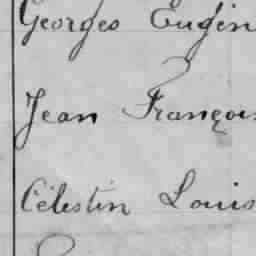 Georges Eugèn
Jean François
Célestin Louis